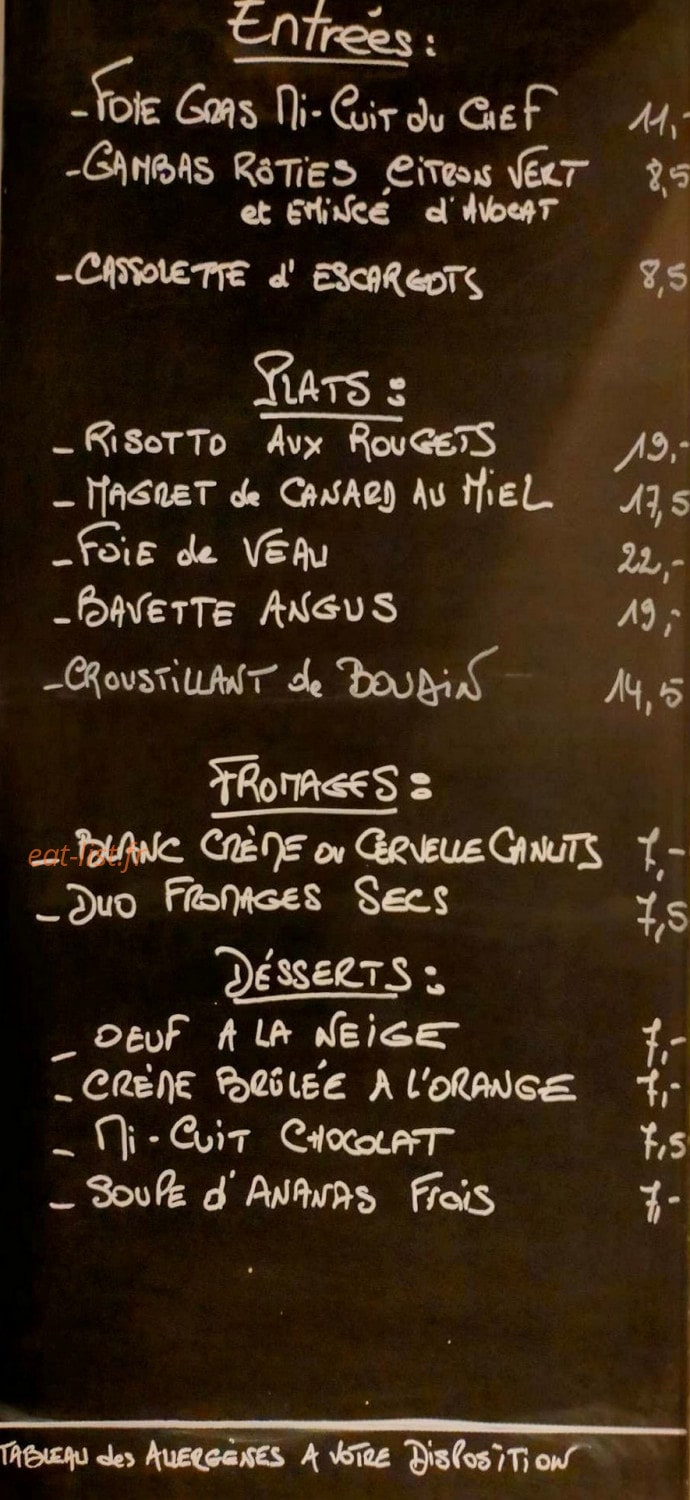 Entrées :
- FOIE GRAS MI-CUIT DU CHEF 11,-
- GAMBAS RÔTIES CITRON VERT 8,5
et EMINCÉ d'AVOCAT
- CASSOLETTE d'ESCARGOTS 8,5
PLATS :
- RISOTTO AUX ROUGETS 19,-
- MAGRET de CANARD AU MIEL 17,5
- FOIE de VEAU 22,-
- BAVETTE ANGUS 19,-
- CROUSTILLANT de BOUDIN 14,5
FROMAGES :
- BLANC CRÈME OU CERVELLE CANUTS 7,-
eat-list.fr
- DUO FROMAGES SECS 7,5
DÉSSERTS :
- OEUF A LA NEIGE 7,-
- CRÈME BRÛLÉE A L'ORANGE 7,-
- MI-CUIT CHOCOLAT 7,5
- SOUPE d'ANANAS FRAIS 7,-
TABLEAU des ALLERGÈNES A VOTRE DISPOSITION